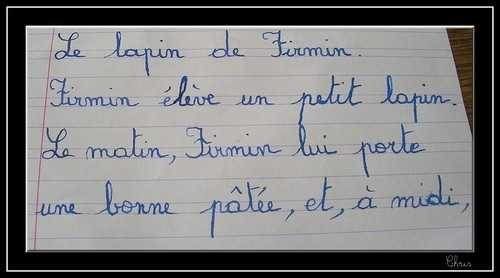 Le lapin de Firmin.
Firmin élève un petit lapin.
Le matin, Firmin lui porte
une bonne pâtée, et, à midi,
Chris